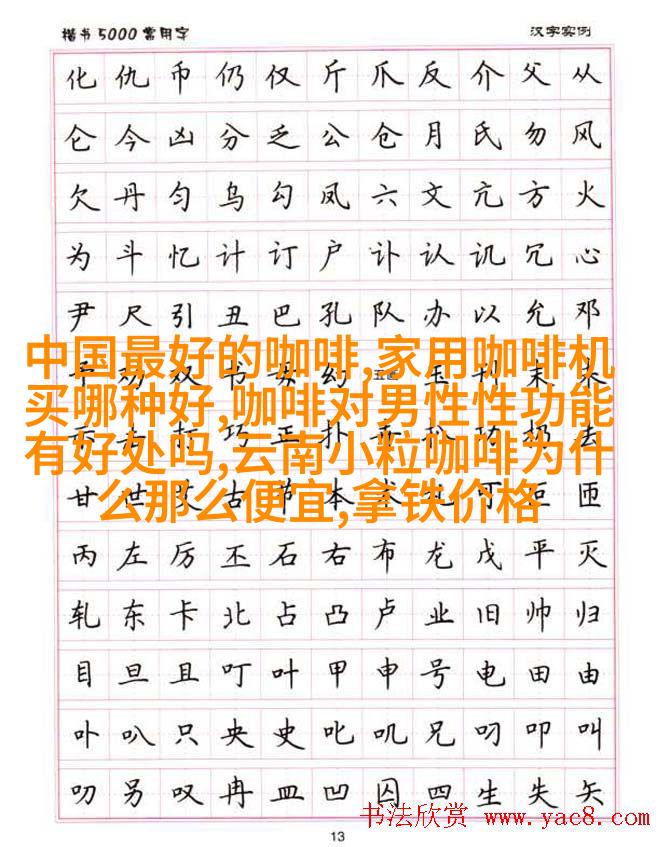 楷书5000常用字 汉字实例
化 仇 币 仍 仅 斤 爪 反 介 父 从
仑 今 凶 分 乏 公 仓 月 氏 勿 风
欠 丹 匀 乌 勾 凤 六 文 亢 方 火
为 斗 忆 计 订 户 讣 认 讥 冗 心
尹 尺 引 丑 巴 孔 队 办 以 允 邓
中国最好的咖啡,家用咖啡机
买哪种好,咖啡对男性性功能
有好处吗,云南小粒咖啡为什
么那么便宜,拿铁价格
双 书 幻 刊 末
打 巧 正 扑 功 扔 去
甘 世 艾 古 节 本 术 札 可
丙 左 厉 丕 石 右 布 龙 戊 平 灭
轧 东 卡 北 占 凸 卢 业 旧 帅 归
目 旦 且 叮 叶 甲 申 号 电 田 由
卟 叭 只 央 史 叱 叽 兄 叼 叩 叫
叻 另 叹 冉 皿 凹 囚 四 生 失 矢
书法欣赏 www.yac8.com
13